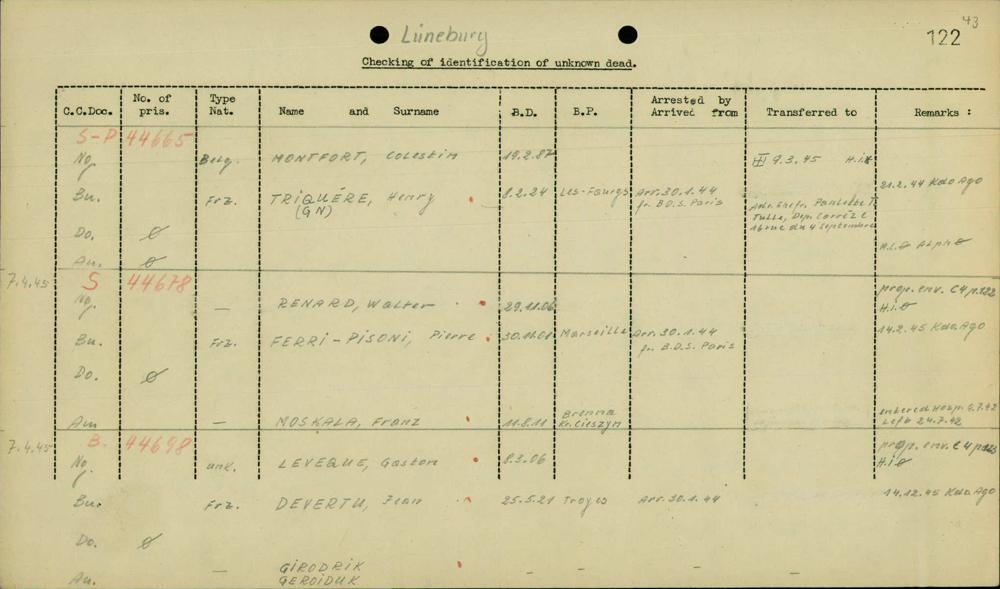 43
Lüneburg
122
Checking of identification of unknown dead.
C.C.Doc. No. of pris. Type Nat. Name and Surname B.D. B.P. Arrested by Arrived from Transferred to Remarks :
S-P 44665
Ng. Belg. MONTFORT, Colestin 19.2.87 9.3.45
21.2.44 Kdo Ago
Bu. Frz. TRIQUÉRE, Henry 8.2.24 Les-Fourgs Arr. 30.1.44
(GN) fr. B.D.S. Paris
Tulle, Dep. Corréze
16 rue du 4 Septembre
Do. ø
Au. ø
7.4.45 S 44678
prop. env. C4 p.122
Ng. — RENARD, Walter 29.11.06 H.i.ø
14.2.45 Kdo Ago
Bu. Frz. FERRI-PISONI, Pierre 30.11.01 Marseille Arr. 30.1.44
fr. B.D.S. Paris
Do. ø
Brenna entered Hosp. 9.7.42
Am — MOSKALA, Franz 11.8.11 Kr. Cieszyn Left 24.7.42
7.4.45 B. 44698
prop. env. C4 p.123
Ng. unk. LEVEQUE, Gaston 8.3.06 H.i.ø
14.12.45 Kdo Ago
Bu. Frz. DEVERTU, Jean 25.5.21 Troyes Arr. 30.1.44
Do. ø
GIRODRIK
Au. — GEROIDUK — — — — —